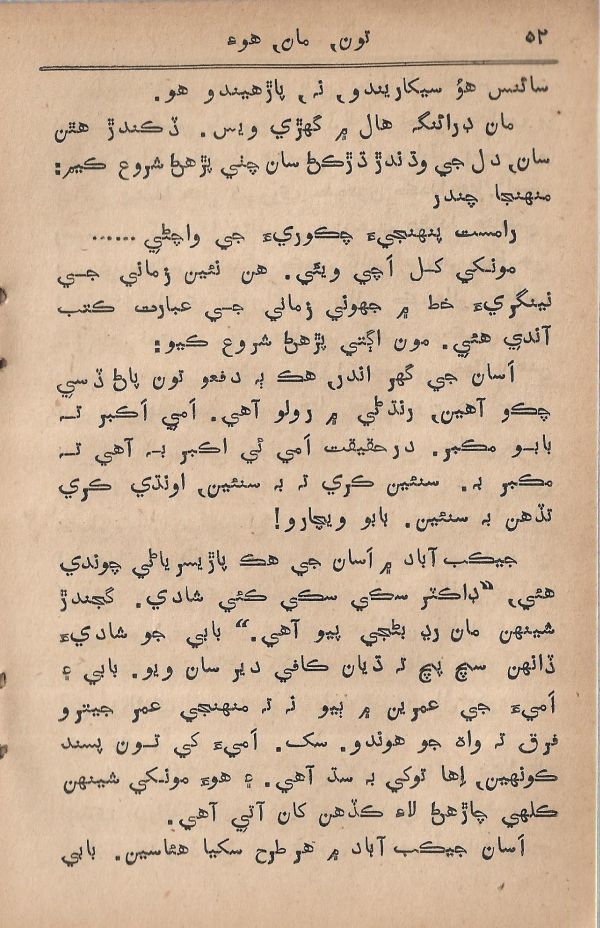 ۵۲ تون, مان, هوءَ
سائنس هوُ سيکاريندو, نہ, پاڙهيندو هو.
مان ڊرائنگ هال ۾ گهڙي ويس. ڏڪندڙ هٿن
سان, دل جي وڌندڙ ڌڙڪڻ سان چٺي پڙهڻ شروع ڪيم:
منهنجا چندر
رامست پنهنجيءَ چڪوريءَ جي واچڻي......
مونکي کل اَچي ويئي. هن نئين زماني جي
نينگريءَ خط ۾ جهوني زماني جي عبارت ڪتب
آندي هئي. مون اڳتي پڙهڻ شروع ڪيو:
اَسان جي گهر اندر, هڪ ٻہ دفعو تون پاڻ ڏسي
چڪو آهين, رنڌڻي ۾ رولو آهي. اَمي اَڪبر تہ
بابو مڪبر. درحقيقت اَمي ئي اڪبر بہ آهي تہ
مڪبر بہ. سنئين ڪري تہ بہ سنئين, اونڌي ڪري
تڏهن بہ سنئين. بابو ويچارو!
جيڪب آباد ۾ اَسان جي هڪ پاڙيسرياڻي چوندي
هئي, “ڊاڪٽر سڪي سڪي ڪئي شادي. گجندڙ
شينهن مان رڍ بڻجي پيو آهي.” بابي جو شاديءَ
ڏانهن سچ پچ تہ ڌيان ڪافي دير سان ويو. بابي ۽
اَميءَ جي عمرين ۾ ٻيو نہ تہ منهنجي عمر جيترو
فرق تہ واہ جو هوندو. سڪ. اَميءَ کي تون پسند
ڪونهين, اِها توکي بہ سڌ آهي. ۽ هوءَ مونکي شينهن
ڪلهي چاڙهڻ لاءِ ڪڏهن کان آتي آهي.
اَسان جيڪب آباد ۾ هر طرح سکيا هئاسين. بابي